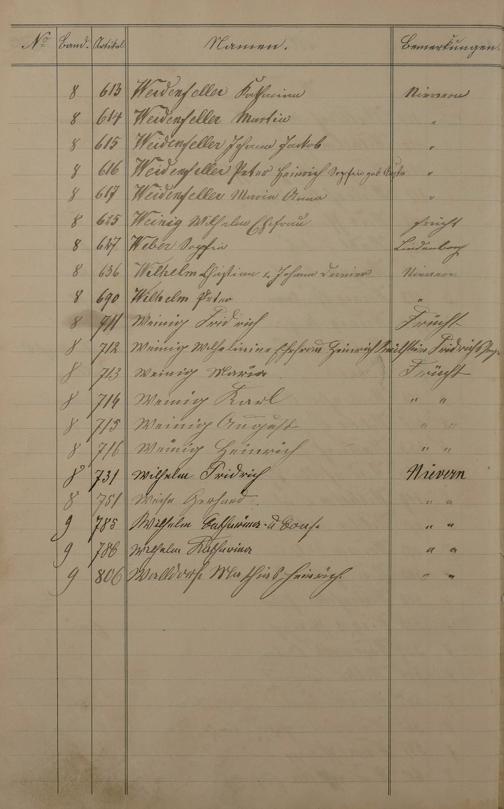 No. Band. Artikel. Namen. Bemerkungen.
8 613 Weidenfeller Katharina Nievern
8 614 Weidenfeller Martin "
8 615 Weidenfeller Johann Jakob "
8 616 Weidenfeller Peter Heinrich "
8 617 Weidenfeller Maria Anna "
8 625 Weinig Wilhelm Ehefrau Frücht
8 627 Weber Sophia Lindenbach
8 636 Wilhelm Christian Johann Nievern
8 690 Wilhelm Peter "
8 711 Weinig Fridrich Frücht
8 712 Weinig Wilhelmine Ehefrau Heinrich Fridrichs
8 713 Weinig Maria Frücht
8 714 Weinig Karl " "
8 715 Weinig August " "
8 716 Weinig Heinrich " "
8 731 Wilhelm Fridrich Nievern
8 751 Gerhard " "
9 785 Wilhelm Catharina " "
9 786 Wilhelm Katharina " "
9 806 Walldorf Mathias Heinrich " "